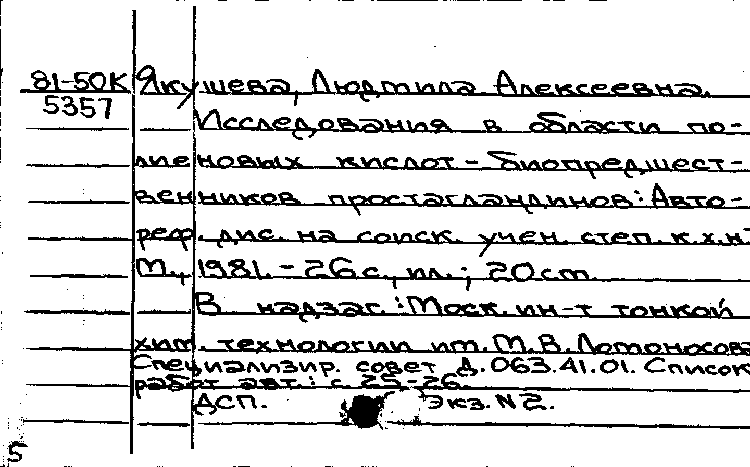 81-50К Якушева, Людмила Алексеевна.
5357
Исследования в области по-
лиеновых кислот - биопредшест-
венников простагландинов: Авто-
реф. дис. на соиск. учен. степ. к.х.н.
М., 1981. - 26 с., ил.; 20 cm.
В надзаг.: Моск. ин-т тонкой
хим. технологии им. М.В. Ломоносова
Специализир. совет Д.063.41.01. Список
работ авт.: с 25-26.
ДСП. Экз. N2.
5